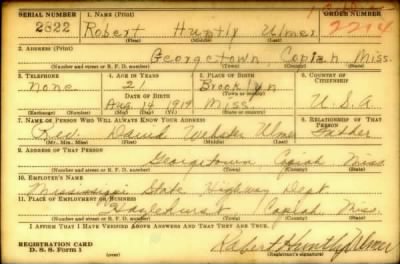 SERIAL NUMBER 1. NAME (Print) ORDER NUMBER
2822 Robert Huntly Ulmer 2214
(First) (Middle) (Last)
2. ADDRESS (Print)
Georgetown, Copiah Miss.
(Number and street or R. F. D. number) (Town) (County) (State)
3. TELEPHONE 4. AGE IN YEARS 5. PLACE OF BIRTH 6. COUNTRY OF CITIZENSHIP
None 21 Brooklyn
DATE OF BIRTH (Town or county)
Aug. 14 1919 Miss. U.S.A.
(Exchange) (Number) (Mo.) (Day) (Yr.) (State or country)
7. NAME OF PERSON WHO WILL ALWAYS KNOW YOUR ADDRESS 8. RELATIONSHIP OF THAT PERSON
Rev. David Webster Ulmer Father
(Mr., Mrs., Miss) (First) (Middle) (Last)
9. ADDRESS OF THAT PERSON
Georgetown Copiah Miss.
(Number and street or R. F. D. number) (Town) (County) (State)
10. EMPLOYER'S NAME
Mississippi State Highway Dept
11. PLACE OF EMPLOYMENT OR BUSINESS
Hazlehurst Copiah Miss.
(Number and street or R. F. D. number) (Town) (County) (State)
I AFFIRM THAT I HAVE VERIFIED ABOVE ANSWERS AND THAT THEY ARE TRUE.
REGISTRATION CARD
D. S. S. Form 1 (over) Robert Huntly Ulmer
(Registrant's signature)